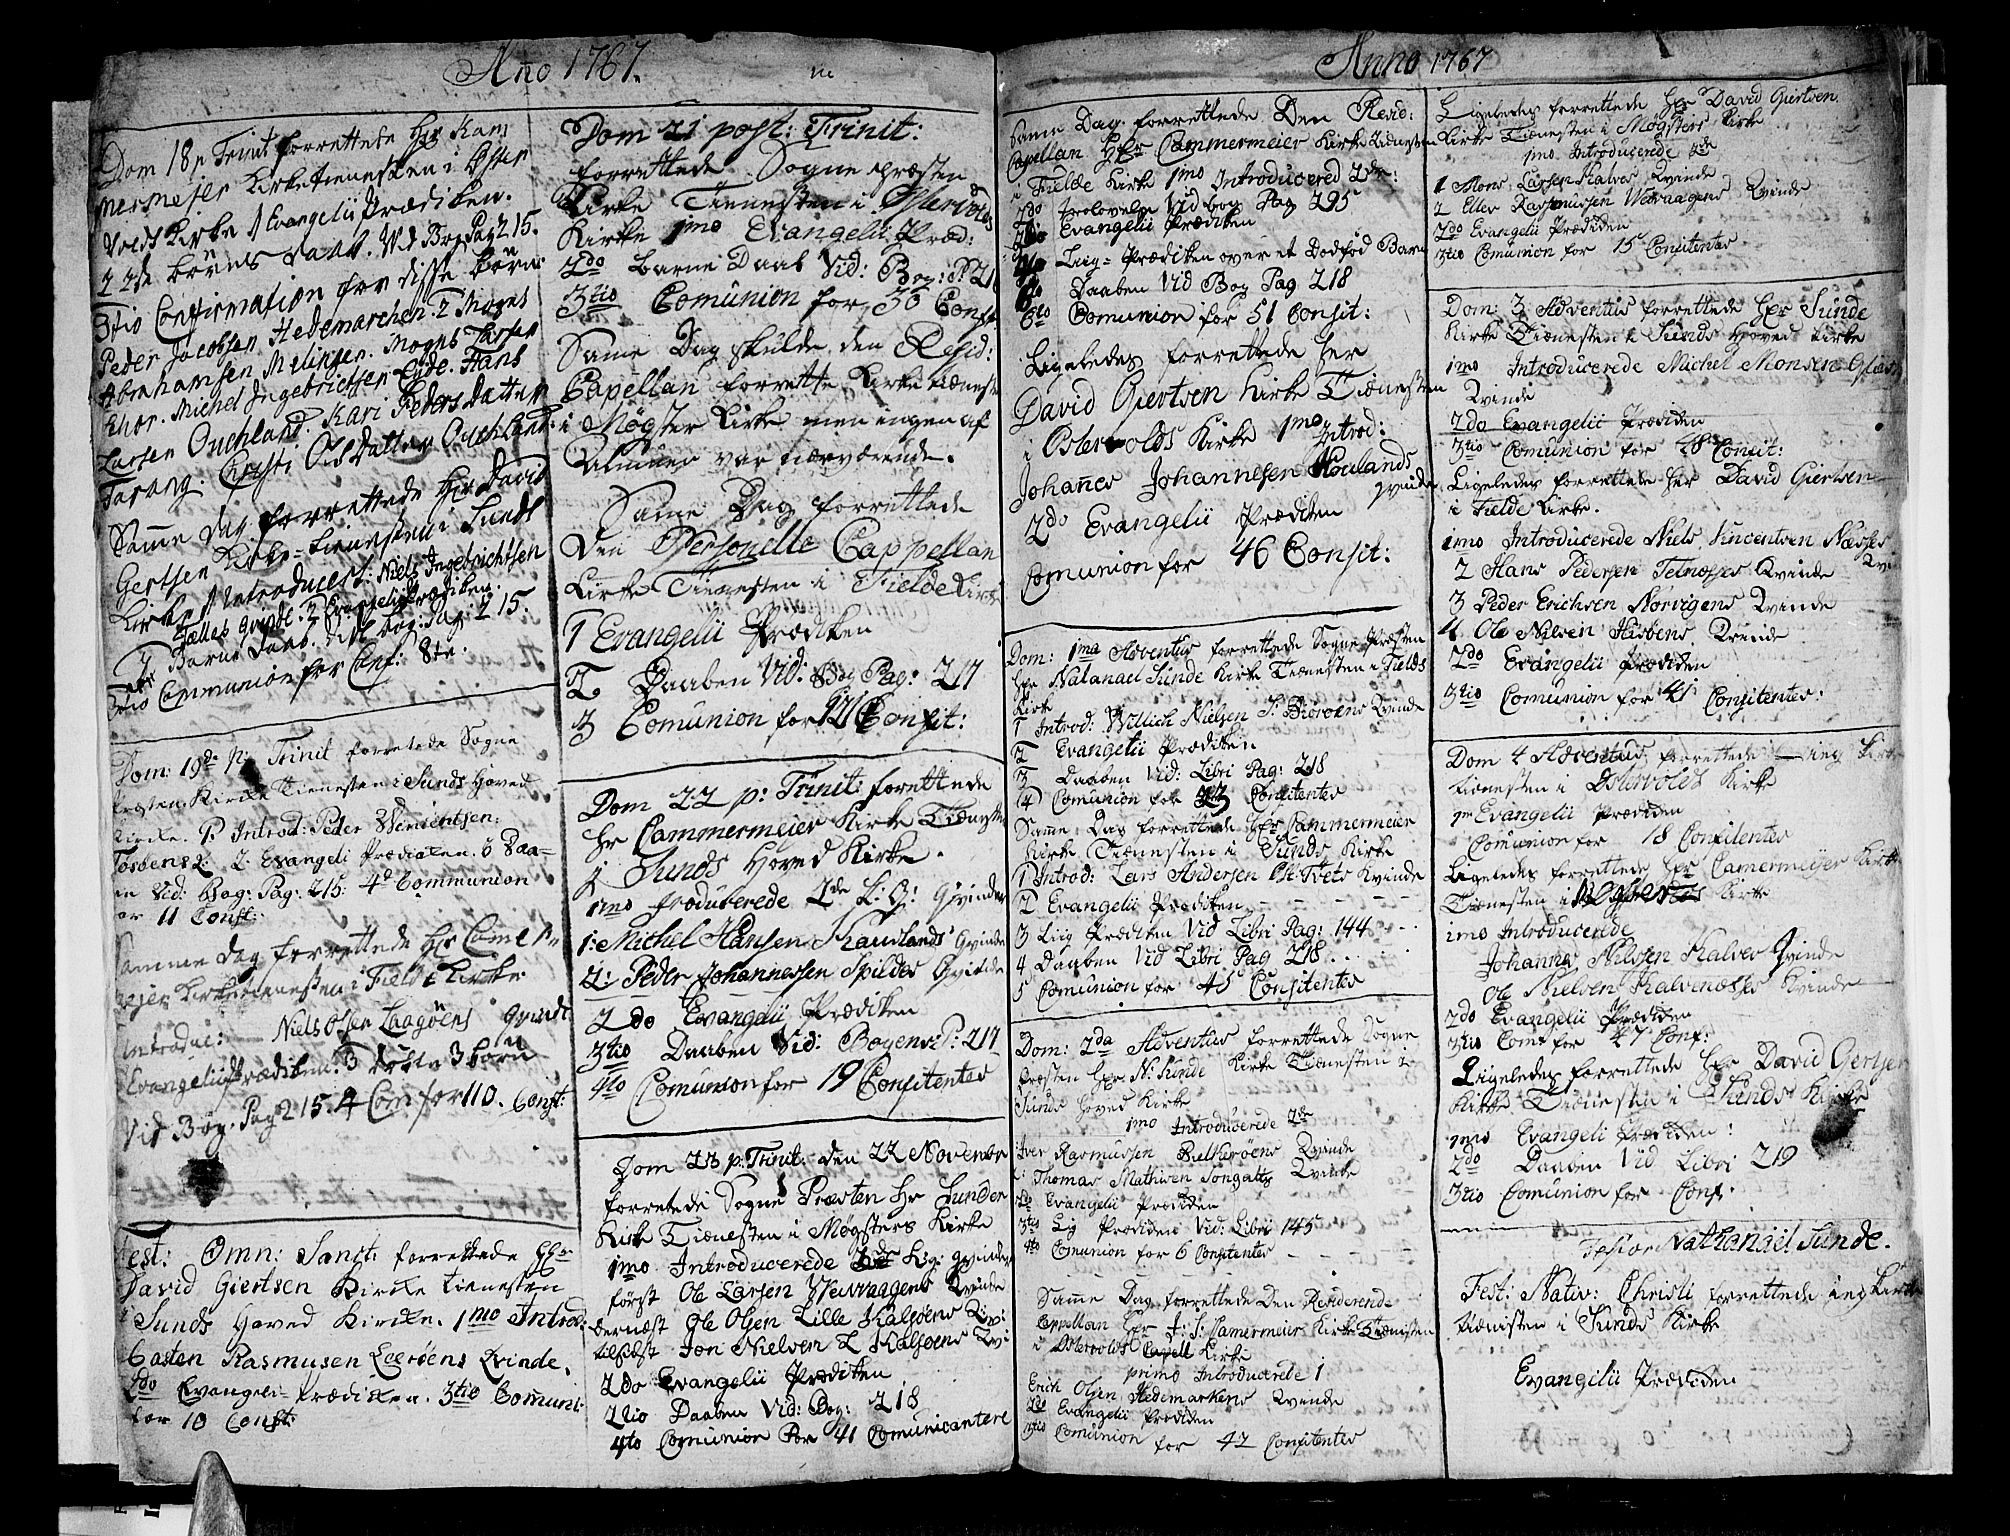 Año 1767.
Dom 18 p Trinit forrettede Hr Kam
mermejer Kirketienesten i Øster
volds Kirke 1 Evangelii Prædiken.
2 2de børns daab. Vid Bog Pag 215.
3tio Confirmation for disse børn
Peder Jacobsen Hedemarchen. 2 Mogns
Abrahamsen Melingen. Mogns Larsen
Thor. Michel Ingebrictsen Eide. Hans
Larsen Ouchland. Kari Peders Datter
Tarang. Chrysti Ols Datter Ouchland:
Samme Dag forrettede Hr David
Gertsen Kirke-tienesten i Sunds
Kirke 1 Introducert: Niels Ingebrichtsen
qvinde. 2 Evangelii Prædiken.
Barne Daab. Vide bog: Pag 215.
3tio Communion for Conf: 8te.
Dom: 19de p: Trinit forretede Sogne
Præsten Kircke Tienesten i Sunds Hoved
Kircke. P. Introd: Peder
2. Evangeli Prædicken. 3 Daa=
en Vid: Bog: Pag: 215: 4d Communion
or 11 Const:
Samme dag forrettede Hr Camer
mejer Kirketienesten i Fielde Kirke
Introdue: Niels Olsen Laagöens qvinde
Evangelii Prædiken. 3 döbte 3 barn
Vid Bog. Pag 215. 4 Com for 110. Const:
Fest: Omn: Sanct: forrettede Hr
David Giertsen Kircke tienesten
i Sunds Hoved Kircke. 1mo Introd:
Casten Rasmusen Leeröens Qvinde.
2do Evangeli=Prædicken. 3tio Comuni:
for 10 Const:
Dom 21 post: Trinit:
forrettede Sogne Præsten
Kirke Tienesten i Østervolds
Kirke 1mo Evangelii Præd:
2do barne Daab Vid: Bog: P: 21
3tio Comunion for 30 Consf:
Same Dag skulde den Resid:
Capellan forrette Kirke tienesten
i Møgster Kirke men ingen af
Almuen var nærværende.
Same Dag forrettede
Den Personelle Cappellan
Kirke Tienesten i Fielde Kirke
1 Evangelii Prædiken
2 Daaben Vid: Bog Pag: 217
3 Comunion for Consit:
Dom 22 p: Trinit: forettede
Hr Cammermeier Kirke Tiænesten
i Sunds Hoved Kirke.
1mo froducerede 2de Qvinder
1: Michel Hansen Haulands Qvinde
2: Peder Johannessen Spildes Qvinde
2do Evangelii Prædiken
3tio Daaben Vid: Bogens P: 217
4to Comunion for 19 Consitentes
Dom 23 p: Trinit: den 22 Novembr
forretede Sogne Præsten Hr Sunder
Kirke Tiænesten i Møgsters Kirke
1mo Introducerede qvinder
först Ole Larsen Wevaagens Qvinde
dernæst Ole Olsen Lille Kalsöens Qvi:
tilsidst Jon Nielsen L Kalsöens Qvi
2do Evangelii Prædiken
2tio Daaben Vid: Bog: 218
4to Comunion For 41 Comunicantere
Anno 1767
Same Dag forrettede Den Resid:
Capellan Hr Cammermeier Kirke Tienesten
i Fielde Kirke 1mo Introducered 2de:
2do Trolovelse Vid bog Pag 295
Evangelii Prædiken
Liig=Prædiken over et Dødfød Barn
Daaben Vid Bog Pag 218
6to Comunion for 51 Consit:
Ligeledes forrettede Hr
David Giertsen Kirke Tiænesten
i Ostervolds Kirke 1mo Introd:
Johañes Johannesen Houlands
Qvinde
2do Evangelii Prædiken
Comunion for 46 Consit:
Dom: 1ma Adventus forrettede Sogne Præsten
Hr Natanael Sunde Kirke Tiænesten i Fields
Kirke
1 Introd: Willich Nielsen S: Biöröens Qvinde
2 Evangelii Prædiken
3 Daaben Vid: Libri Pag: 218
4 Comunion for Consitentes
Same Dag forrettede Hr Cammermeier
Kirke Tiænesten i Sunds Kirke
1 Introd: Lars Andersen Qvinde
2 Evangelii Prædiken
3 Liig Prædiken Vid Libri Pag: 144
4 Daaben Vid Libri Pag 218
5 Comunion for 45 Consitentes
Dom: 2da Adventus forrettede Sogne
Præsten Hr N: Sunde Kirke Tiænesten i
Sunds Hoved Kirke
1mo Introducerede 2de
Iver Rasmussen Qvinde
Thomas Mathisen Songalts Qvinde
2do Evangelii Prædiken
3tio Lig Prædiken Vid: Libri 145
4to Comunion for 6 Consitentes
Same Dag forrettede Den Residerende
Cappellan Hr J: S: Camermeier Kirke Tiænisten
i Ostervolds Kirke
primo Introducerede 1
Erich Olsen Hedemarkens Qvinde
2do Evangelii Prædiken
3tio Comunion for 42 Consitentes
Ligeledes forrettede Hr David Giertsen
Kirke Tiænesten i Møgsters Kirke
1mo Introducerede 2de
1 Mons Larsen Kalvøs Qvinde
2 Ellev Rasmussen Wevaagens Qvinde
2do Evangelii Prædiken
3tio Comunion for 15 Consitentes
Dom: 3 Adventus forrettede Hr Sunde
Kirke Tiænesten i Sunds Hoved Kirke
1mo Introducerede Michel Monsen
Qvinde
2do Evangelii Prædiken
3tio Comunion for 28 Consit:
Ligeledes forrettede Hr David Giertsen
i Fielde Kirke.
1mo Introducerede Niels Vincentsen Næsses
Qvi
2 Hans Pedersen Qvinde
3 Peder Erichsen Norvigens Qvinde
4 Ole Nilsen Qvinde
2do Evangelii Prædiken
3tio Comunion for 41 Consitentes.
Dom 4 Adventus forrettede ieg Kirke
tiænesten i Ostervolds Kirke
1m Evangelii Prædiken
Comunion for 18 Consitentes
Ligeledes forrettede Hr Camermeijer Kirke
Tiænesten i Møgsters Kirke
1mo Introducerede
Johannes Nilssen Kalvøs Qvinde
Ole Nielsen Kalvenæsses Qvinde
2do Evangelii Prædiken
3tio Com for 47 Conf:
Ligeledes forrettede Hr David Gertsen
Kirke Tiænesten i Sunds Kirke
1mo Evangeli Prædiken:
2do Daaben Vid Libri 219
3tio Comunion for Conf.
Nathanael Sunde.
Fest: Nativ: Christi forrettede ieg Kirke
Tiænisten i Sunds Kirke
Evangelii Prædiken